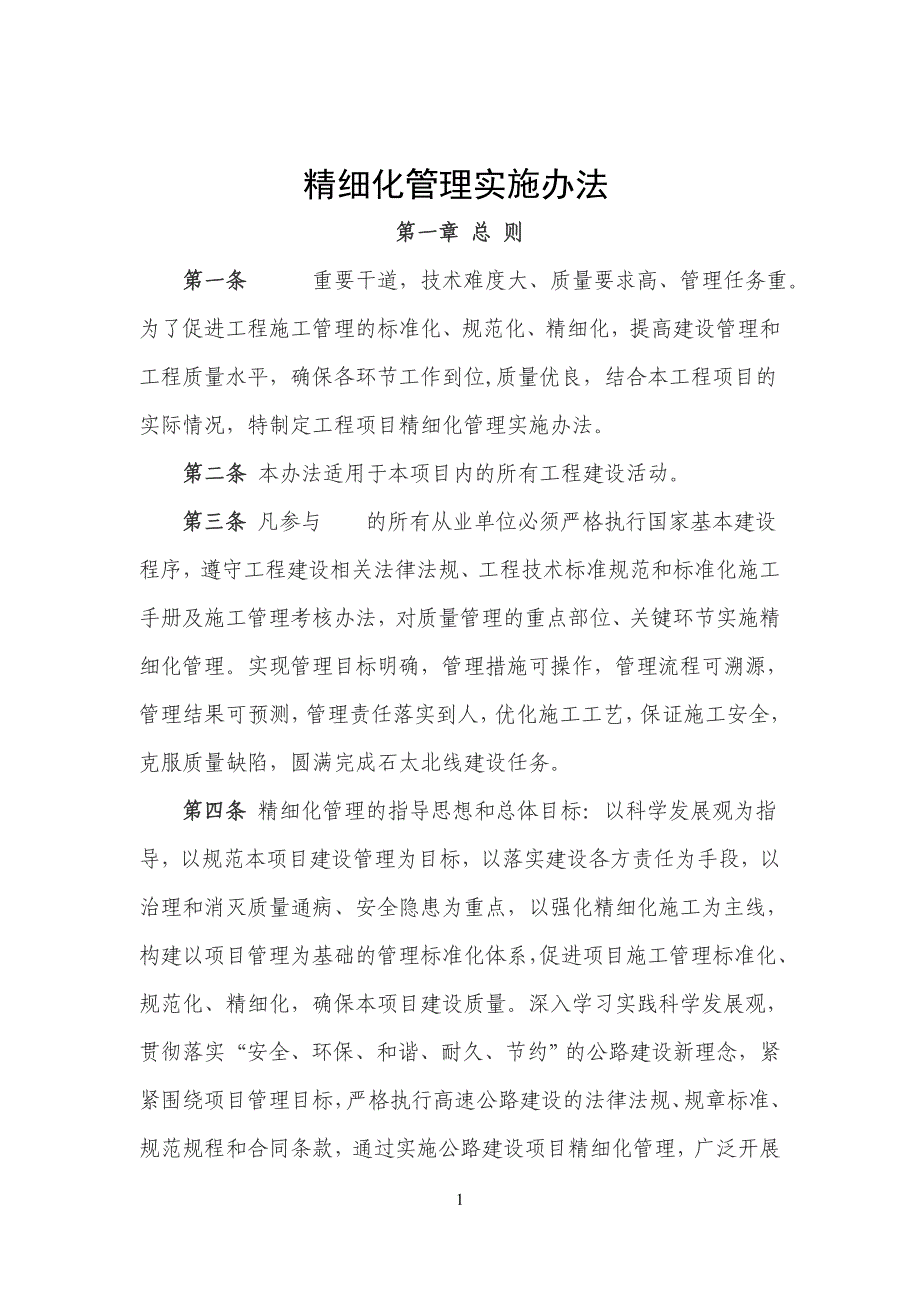 精细化管理实施办法
第一章 总 则
第一条 重要干道，技术难度大、质量要求高、管理任务重。
为了促进工程施工管理的标准化、规范化、精细化，提高建设管理和
工程质量水平，确保各环节工作到位,质量优良，结合本工程项目的
实际情况，特制定工程项目精细化管理实施办法。
第二条 本办法适用于本项目内的所有工程建设活动。
第三条 凡参与 的所有从业单位必须严格执行国家基本建设
程序，遵守工程建设相关法律法规、工程技术标准规范和标准化施工
手册及施工管理考核办法，对质量管理的重点部位、关键环节实施精
细化管理。实现管理目标明确，管理措施可操作，管理流程可溯源，
管理结果可预测，管理责任落实到人，优化施工工艺，保证施工安全，
克服质量缺陷，圆满完成石太北线建设任务。
第四条 精细化管理的指导思想和总体目标：以科学发展观为指
导，以规范本项目建设管理为目标，以落实建设各方责任为手段，以
治理和消灭质量通病、安全隐患为重点，以强化精细化施工为主线，
构建以项目管理为基础的管理标准化体系，促进项目施工管理标准化、
规范化、精细化，确保本项目建设质量。深入学习实践科学发展观，
贯彻落实“安全、环保、和谐、耐久、节约”的公路建设新理念，紧
紧围绕项目管理目标，严格执行高速公路建设的法律法规、规章标准、
规范规程和合同条款，通过实施公路建设项目精细化管理，广泛开展
1